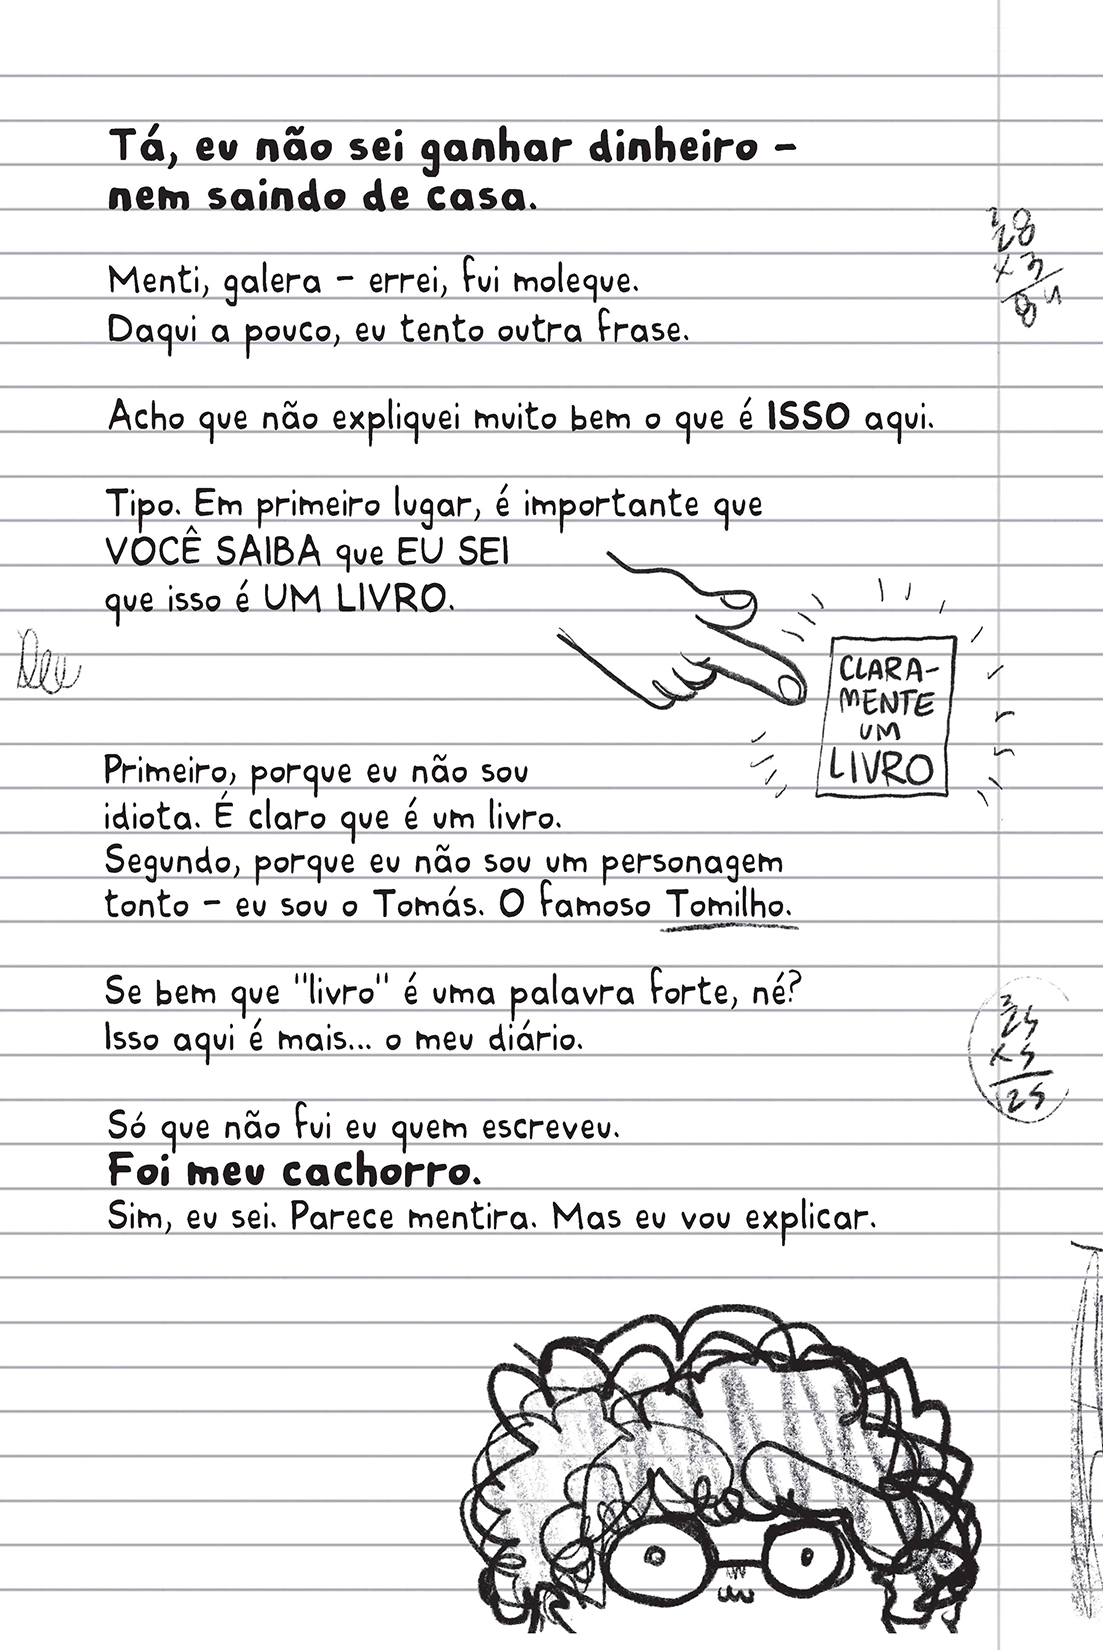 Tá, eu não sei ganhar dinheiro –
nem saindo de casa.
28
x 3
84
Menti, galera – errei, fui moleque.
Daqui a pouco, eu tento outra frase.
Acho que não expliquei muito bem o que é ISSO aqui.
Tipo. Em primeiro lugar, é importante que
VOCÊ SAIBA que EU SEI
que isso é UM LIVRO.
CLARA-
MENTE
UM
LIVRO
Primeiro, porque eu não sou
idiota. É claro que é um livro.
Segundo, porque eu não sou um personagem
tonto – eu sou o Tomás. O famoso Tomilho.
Se bem que "livro" é uma palavra forte, né?
Isso aqui é mais... o meu diário.
2
25
x 5
125
Só que não fui eu quem escreveu.
Foi meu cachorro.
Sim, eu sei. Parece mentira. Mas eu vou explicar.